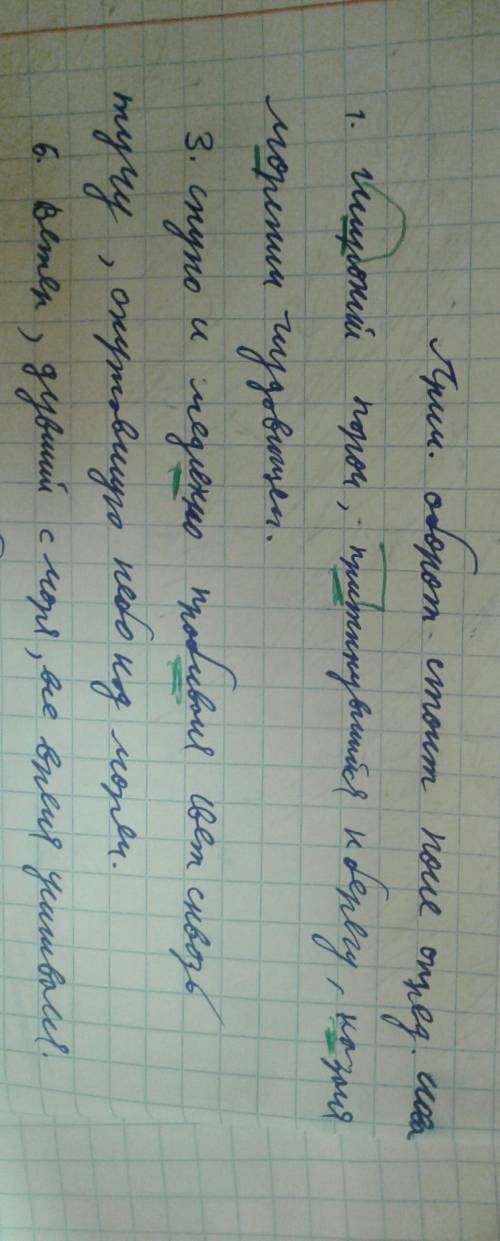 Прич. оборот стоит после опред. слова
1. Широкий паром, приткнувшийся к берегу, казался
морским чудовищем.
3. скупо и медленно пробивался свет сквозь
тучу, окутавшую небо над морем.
6. Ветер, дувший с моря, все время усиливался.